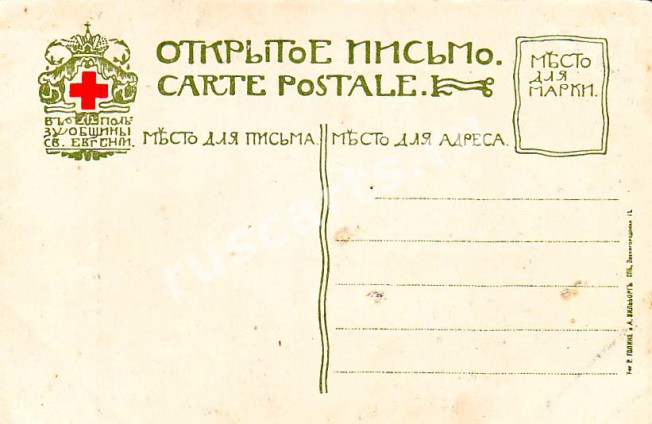 ОТКРЫТОЕ ПИСЬМО.
CARTE POSTALE.
МѢСТО
ДЛЯ
МАРКИ.
ВЪ ПОЛЬ
ЗУ ОБЩИНЫ
СВ. ЕВГЕНІИ.
МѢСТО ДЛЯ ПИСЬМА.
МѢСТО ДЛЯ АДРЕСА.
Р. ГОЛИКЕ и А. ВИЛЬБОРГЪ. СПБ.
ruscarts.ru